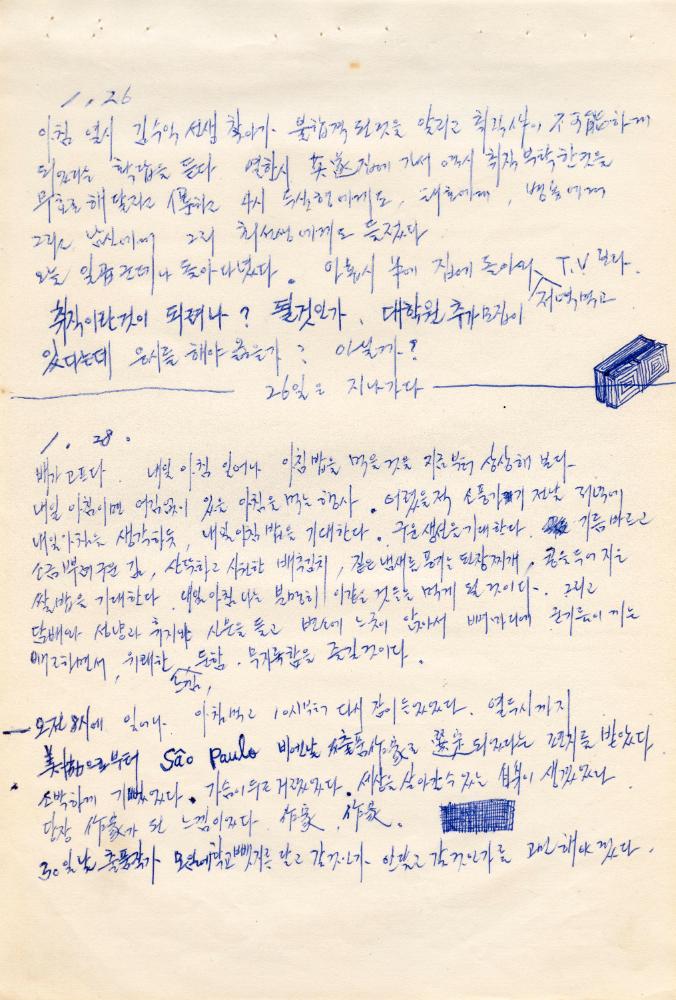 1. 26
아침 열시 김수익 선생 찾아가 불합격 된것을 알리고 취직 不可能하게
되었다는 확답을 듣다 열한시 집에 가서 역시 취직 부탁한것을
무효로 해달라고 하고 4시 에게도,
그리고 에게 그리 최선생에게도 들렸다
오늘 일곱군데나 돌아다녔다. 아홉시 반에 집에 돌아와 저녁먹고 T.V 보다.
취직이란것이 되려나? 될것인가. 대학원 추가모집이
있다는데 응시를 해야 옳을까? 아닐까?
26일은 지나가다
1. 28.
배가 고프다. 내일 아침 일어나 아침밥을 먹을 것을 지금부터 상상해 보다
내일 아침이면 어김없이 있을 아침을 먹는 행사. 어렸을적 소풍가기 전날 저녁에
내일아침을 생각하듯, 내일아침밥을 기대한다. 구운생선을 기대한다. 기름바르고
소금뿌려 구운 김, 산뜻하고 시원한 배추김치, 짙은 냄새를 풍기는 된장찌개, 콩을 두어 지은
쌀밥을 기대한다. 내일아침 나는 분명히 이같은 것들을 먹게 될 것이다. 그리고
담배와 성냥과 휴지와 신문을 들고 변소에 느긋이 앉아서 뼈마디에
배고하면서, 위대한 느낌, 둔함. 무지륵함을 즐길것이다.
오전 8시에 일어나. 아침먹고 10시부터 다시 잠이 들었었다. 열두시까지
美협으로부터 São Paulo 비엔날 出품作家로 選定되었다는 편지를 받았다
소박하게 기뻤었다. 가슴이 두근거렸었다. 세상을 살아갈수있는 자신이 생겼었다
당장 作家가 된 느낌이었다 作家, 作家.
30일날 출품작가 모임에 학교뺏지를 달고 갈것인가 안달고 갈것인가를 고민해야겠다.